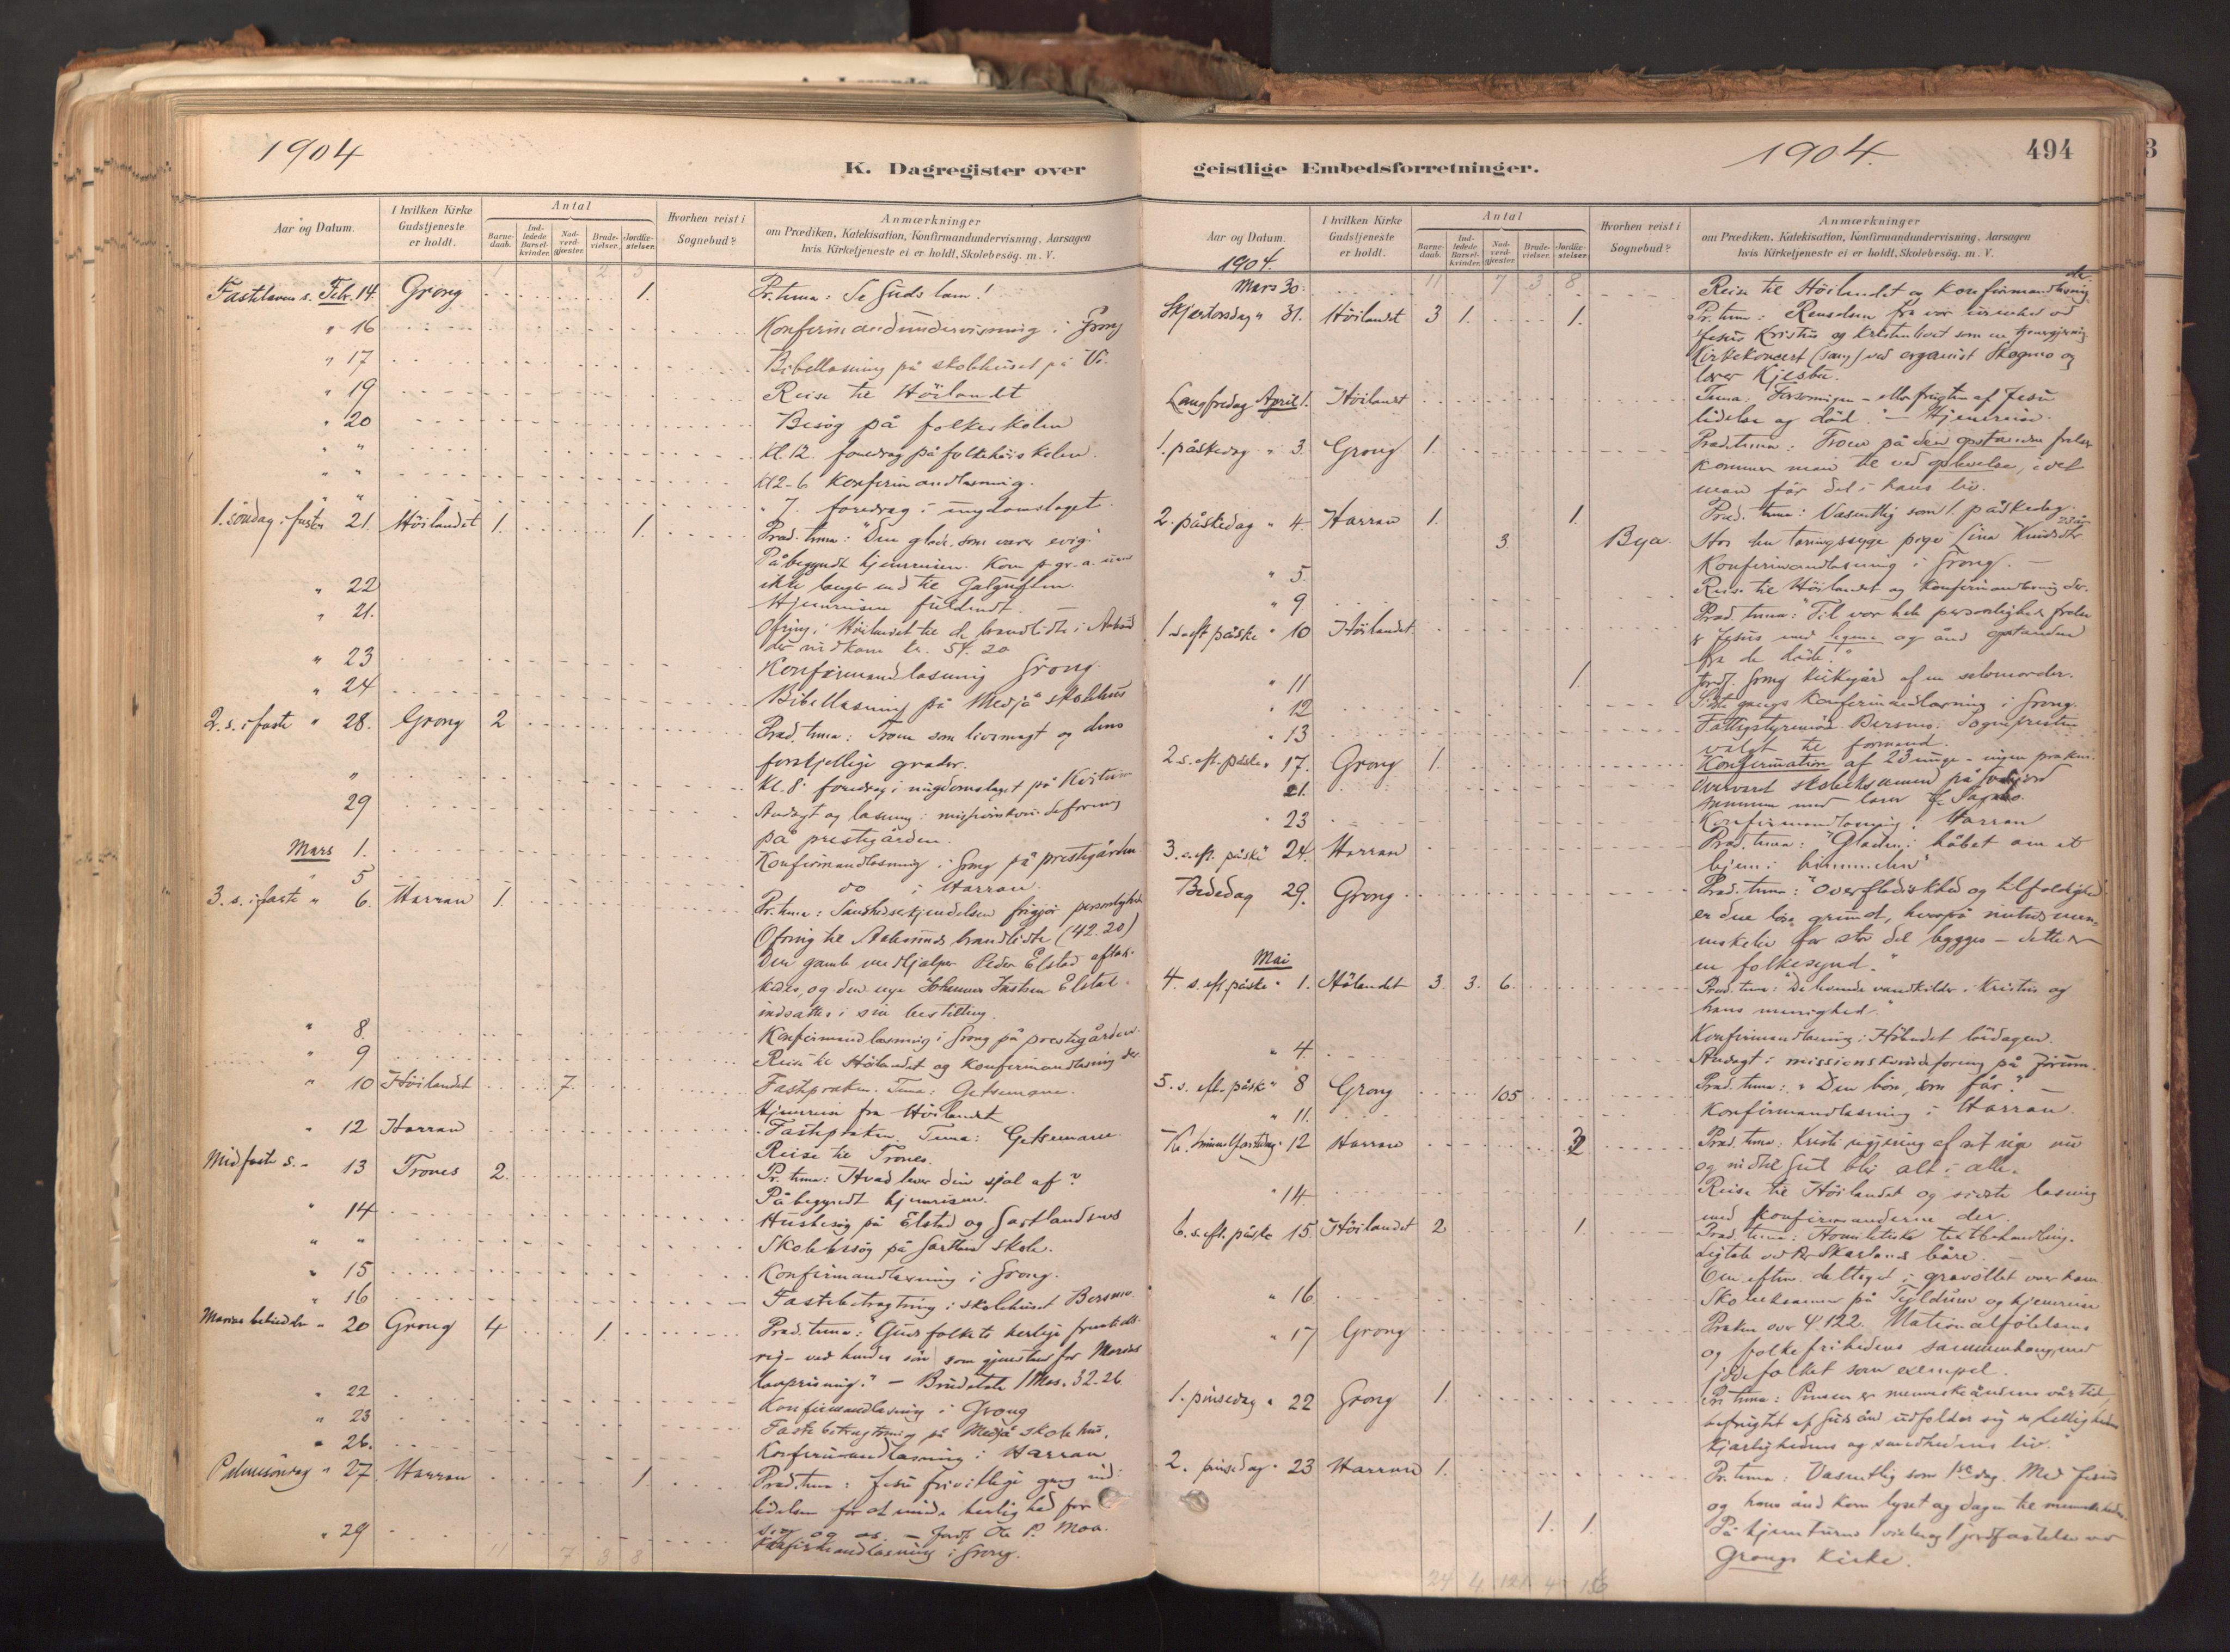 1904
K. Dagregister over
Aar og Datum.
I hvilken Kirke Gudstjeneste er holdt.
Antal
Barne-daab.
Ind-ledede Barsel-kvinder.
Nad-verd-gjester.
Brude-vielser.
Jordfæ-stelser.
Hvorhen reist i Sognebud?
Anmærkninger
om Prædiken, Katekisation, Konfirmandundervisning, Aarsagen
hvis Kirketjeneste ei er holdt, Skolebesøg. m. V.
Fastelavns s. Febr. 14. Grong 1. Pr. tema: Se Guds lam!
" 16 Konfirmandundervisning i Grong
" 17 Bibellæsning på skolehuset på
" 19 Reise til Höilandet
" 20 Besög på folkeskolen
" " Kl. 12. foredrag på folkehöiskolen.
" " Kl 2-6 Konfirmandlæsning.
" 7. foredrag i ungdomslaget.
1. söndag i faste 21. Höilandet 1. 1. Præd. tema: "Den glæde, som varer evig."
Påbegyndt hjemreisen. Kom p. gr. a.
" 22 ikke længer end til
" 21. Hjemreisen fuldendt.
Ofring i Höilandet til de brandlidte i
der indkom kr. 54. 20
" 23 Konfirmandlæsning Grong.
" 24 Bibellæsning på Medjå skolehus
2. s. i faste " 28. Grong 2 Præd. tema: Troen som livsmagt og dens
forskjellige grader.
" Kl. 8. foredrag i ungdomslaget på
29 Andagt og læsning i
på prestegården.
Mars 1. Konfirmandlæsning i Grong på prestegården
" 5 do i Harran.
3. s. i faste " 6. Harran 1. Pr. tema: Sandhedserkjendelsen frigjör
Ofring til Aalesunds brandlidte (42.20)
Den gamle medhjælper Peder Elstad
og den nye Johannes Elstad
indsattes i sin bestilling.
" 8. Konfirmandlæsning i Grong på prestegården.
" 9 Reise til Höilandet og konfirmandlæsning der
" 10 Höilandet 7. Fastepræken. Tema: Getsemane.
Hjemreise fra Höilandet
" 12 Harran Fastepræken. Tema: Getsemane.
Reise til Trones.
Midfaste s. - 13 Trones 2. Pr. tema: Hvad lever din sjæl af?
Påbegyndt hjemreisen.
" 14 Husbesög på Elstad og
" " Skolebesög på skole.
" 15 Konfirmandlæsning i Grong.
" 16 Fastebetragtning i skolehuset
Marias bebudelse " 20 Grong 4 1. Præd. tema: "Guds folkets herlige
ved hendes sön som gjenstand for Marias
lovprisning." - Brudetale 1 Mos. 32-26
" 22 Konfirmandlæsning i Grong
" 23 Fastebetragtning på Medjå skolehus.
" 26. Konfirmandlæsning i Harran
Palmesöndag " 27. Harran 1. Præd. tema: Jesu frivillige gang ind i
lidelsen for at vinde herlighed for
sig og os. - Jordf. Ole P. Moa.
" 29 Konfirmandlæsning i Grong.
11 7 3 8
geistlige Embedsforretninger.
1904.
494
Aar og Datum.
I hvilken Kirke Gudstjeneste er holdt.
Antal
Barne-daab.
Ind-ledede Barsel-kvinder.
Nad-verd-gjester.
Brude-vielser.
Jordfæ-stelser.
Hvorhen reist i Sognebud?
Anmærkninger
om Prædiken, Katekisation, Konfirmandundervisning, Aarsagen
hvis Kirketjeneste ei er holdt, Skolebesøg. m. V.
1904.
11 7 3 8
Mars 30. Reise til Höilandet og Konfirmandlæsning
Skjertorsdag " 31. Höilandt 3 1. 1. Pr. tema: Renselsen fra vor urenhed ved
Jesus Kristus og kristenlivet som en
Kirkekoncert (sang) ved organist Skogmo og
lærer
Langfredag April 1. Höilandt Tema: Forsoningen - eller frugten af Jesu
lidelse og död." - Hjemreise.
1. påskedag " 3. Grong 1. Præd. tema: Troen på den opstandne frelser
kommer man til ved oplevelse, idet
man får del i hans liv.
2. påskedag " 4. Harran 1. 1. Præd. tema: Væsentlig som 1. påskedag.
3. Bya. Hos den tæringssyge pige Lina
" 5. Konfirmandlæsning i Grong. -
" 9 Reise til Höilandet og Konfirmandlæsning der.
1 s. eft. påske " 10 Höilandet Præd. tema: "Til vor hele personligheds frelse
er Jesus med legeme og ånd opstanden
fra de döde."
" 11 1. Jordf. Grong kirkegård af en selvmorder.
" 12 Sidste gangs Konfirmandlæsning i Grong.
" 13 Fattigstyremöde Sognepresten
valgt til formand.
2. s. eft. påske " 17. Grong 1. Konfirmation af 23 unge - ingen præken.
21. Overværet skoleeksamen på
sammen med lærer
" 23 Konfirmandlæsning i Harran
3. s. eft. påske " 24. Harran Præd. tema: "Glæden i håbet om et
hjem i himmelen"
Bededag 29. Grong Præd. tema: "Overfladiskhed og
er den löse grund, hvorpå nutids men-
neskeliv for stor del bygges - dette er
en folkesynd."
Mai
4. s. eft. påske " 1. Hölandet 3. 3. 6. Præd. tema: De levende vandkilder i Kristus og
hans menighed".
Konfirmandlæsning i Hölandet lördagen.
" 4 Andagt i missionskvindeforening på
5. s. eft. påske " 8 Grong 105 Præd. tema: "Den bön, som får"? -
" 11. Konfirmandlæsning i Harran.
Kr. himmelfartsdag " 12 Harran 2 Præd. tema: Kristi regjering af sit rige nu
og indtil Gud blir alt i alle.
" 14. Reise til Höilandet og sidste læsning
med konfirmanderne der.
6. s. eft. påske 15 Höilandet 2 1. Præd. tema: Homiletisk textbehandling.
Ligtale ved Skarlands båre. -
Om eftm. deltaget i gravöllet over ham.
" 16 Skoleeksamen på og hjemreise
" 17 Grong Præken over Nationalfölelsens
og folkefrihedens sammenhæng med
jödefolket som exempel.
1. pinsedag " 22 Grong 1. Pr. tema: Pinsen er menneskeåndens vårtid,
befrugtet af Guds ånd udfolder sig
kjærlighedens og sandhedens liv."
2. pinsedag " 23 Harran 1. Pr. tema: Væsentlig som 1ste dag. Med Jesus
og hans ånd kom lyset og dagen til
1. 1. På hjemturen 1 vielse og 1 jordfæstelse ved
Grongs kirke.
24 4 121 4